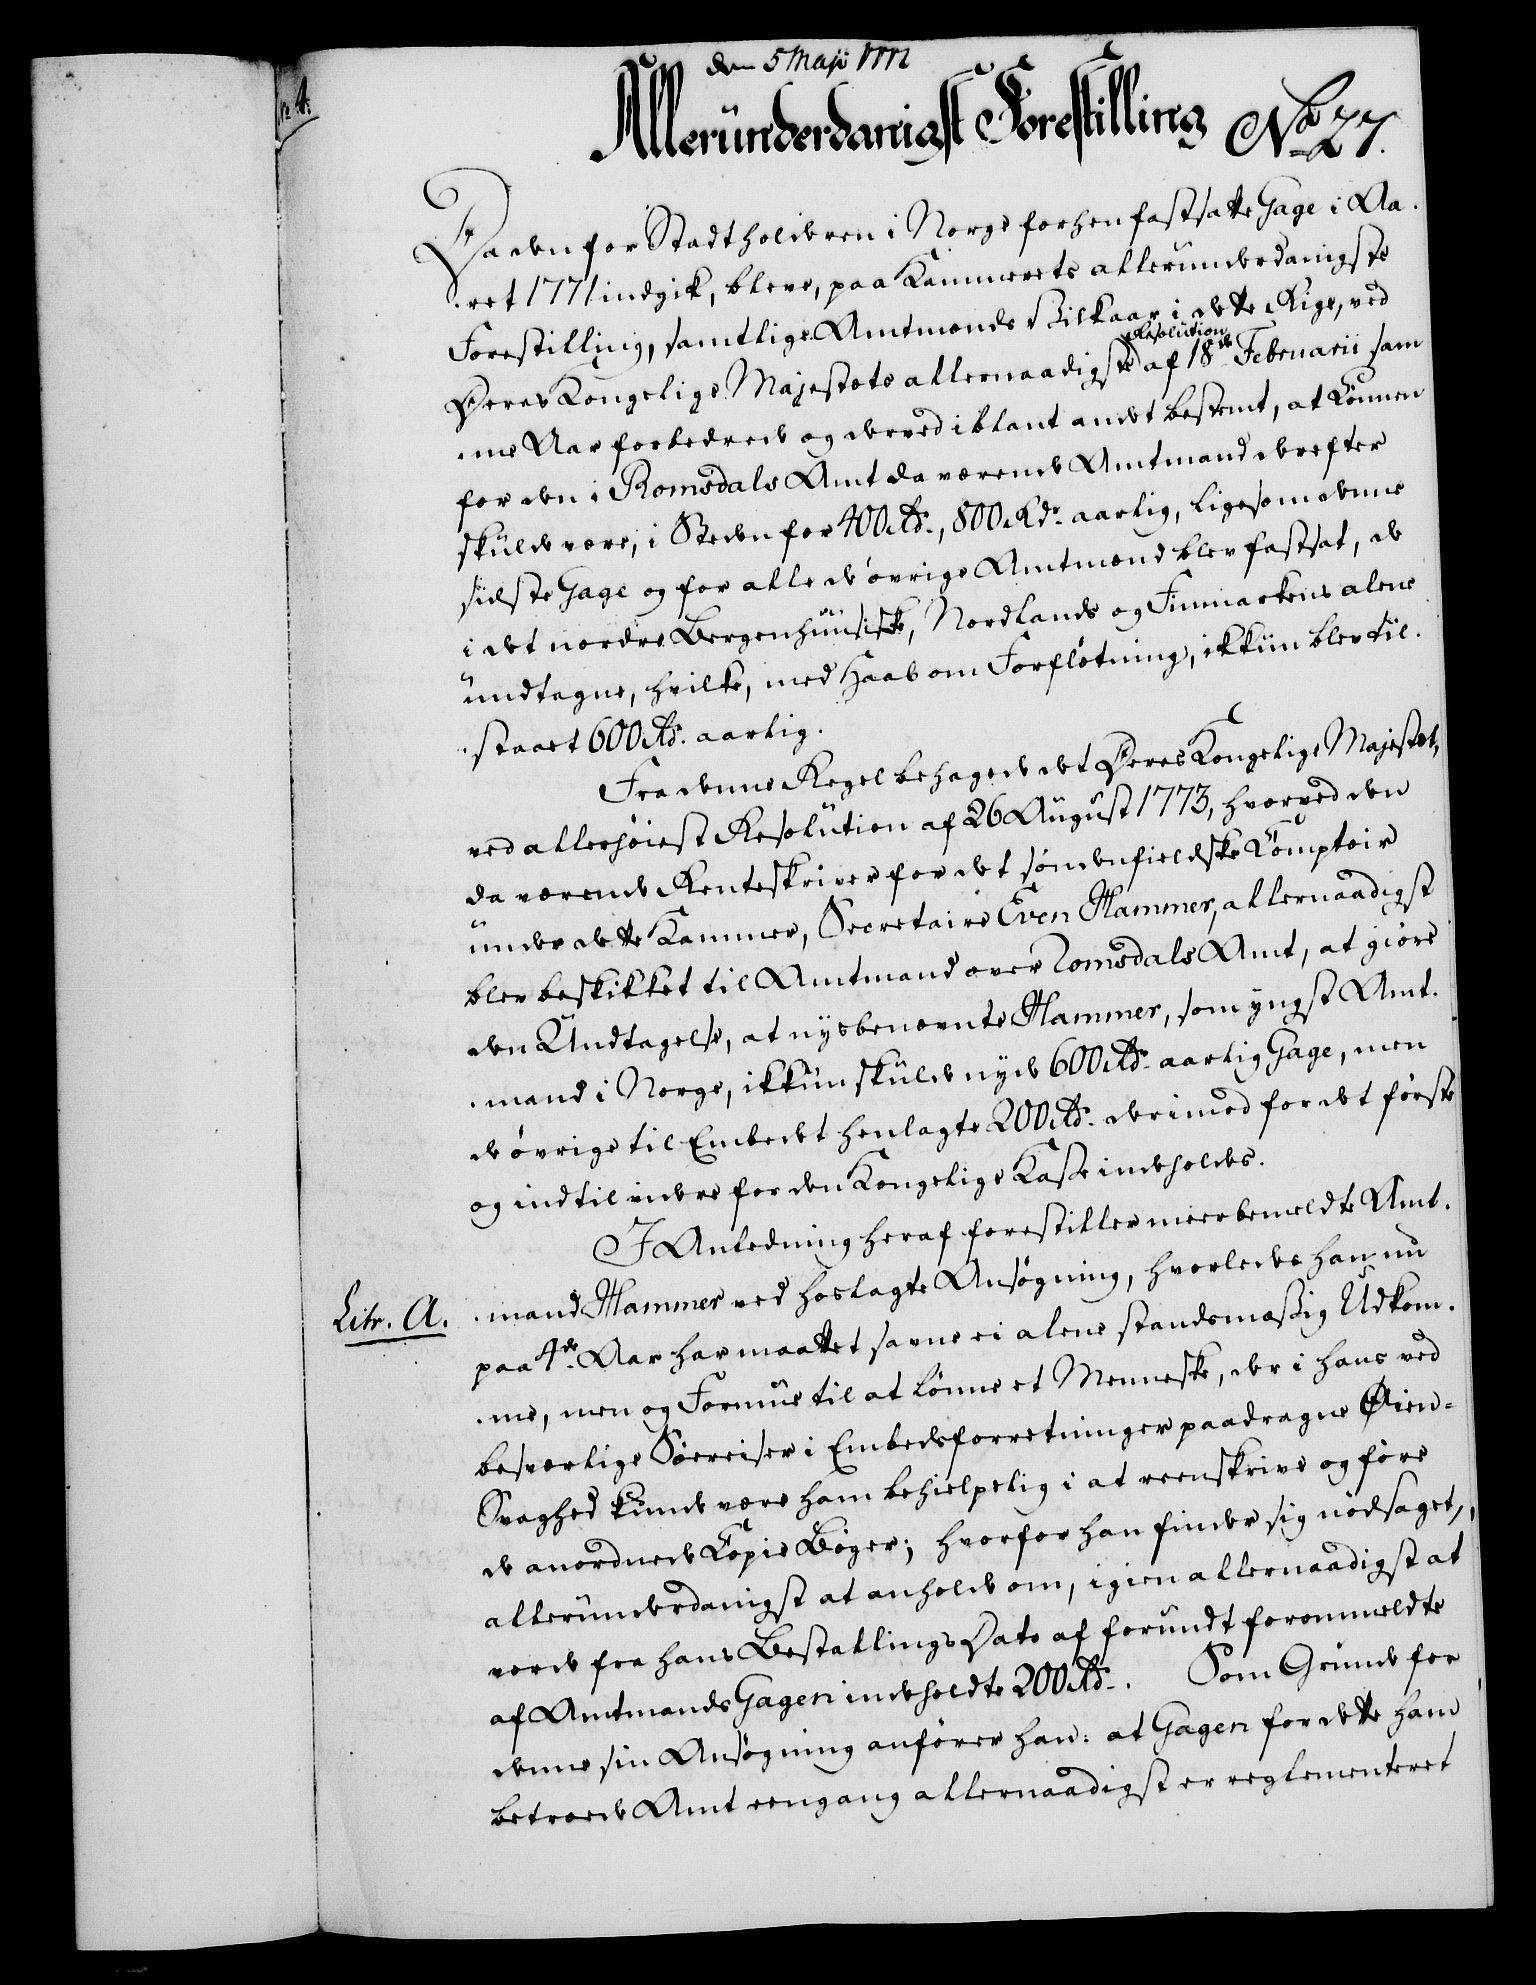 den 5 Maji 1777
Alleründerdanigst Forestilling No 27.
Da den for Stadtholderen i Norge forhen fastsatte Gage i Aa-
-ret 1771 indgik, bleve, paa Kammerets allerunderdanigste
Forestilling, samtlige Amtmænds Vilkaar i dette Rige, ved
Resolution
Deres Kongelige Majestæts allernaadigste af 18de Februarii sam-
-me Aar forbedrede og derved iblant andet bestemt, at Lönnen
for den i Romsdals Amt da værende Amtmand derefter
skulde være, i Steden for 400 Rd., 800 Rdr. aarlig, ligesom denne
sidste Gage og for alle de övrige Amtmænd blev fastsat, de
i det nordre Bergenhuusiske, Nordlands og Finmarkens alene
undtagne, hvilke, med Haab om Forflötning, ikkun blev til-
-staaet 600 Rd. aarlig.
Fra denne Regel behagede det Deres Kongelige Majestæt,
ved allerhöiest Resolution af 26 August 1773, hvorved den
da værende Renteskriver for det söndenfieldske Comptoir
under dette Kammer, Secretaire Even Hammer, allernaadigst
blev beskikket til Amtmand over Romsdals Amt, at giöre
den Undtagelse, at nysbenævnte Hammer, som yngst Amt-
-mand i Norge, ikkun skulde nyde 600 Rd. aarlig Gage, men
de övrige til Embedet henlagte 200 Rd. derimod for det förste
og indtil videre for den Kongelige Kasse indeholdes.
I Anledning heraf forestiller meerbemeldte Amt-
Litr. A. -mand Hammer ved hoslagte Ansögning, hvorledes han nu
paa 4de Aar har maattet savne ei alene standsmæssig Udkom-
-me, men og Formue til at lönne et Menneske, der i hans ved
besværlige Söereiser i Embedsforretninger paadragne Öien-
Svaghed kunde være ham behielpelig i at reenskrive og före
de anordnede Copie Böger; hvorfor han finder sig nödsaget,
allerunderdanigst at anholde om, igien allernaadigst at
vorde fra hans Bestallings Dato af forundt forommeldte
af Amtmands Gagen indeholdte 200 Rd. Som Grunde for
denne sin Ansögning anförer han: at Gagen for dette ham
betroede Amt eengang allernaadigst er reglementeret